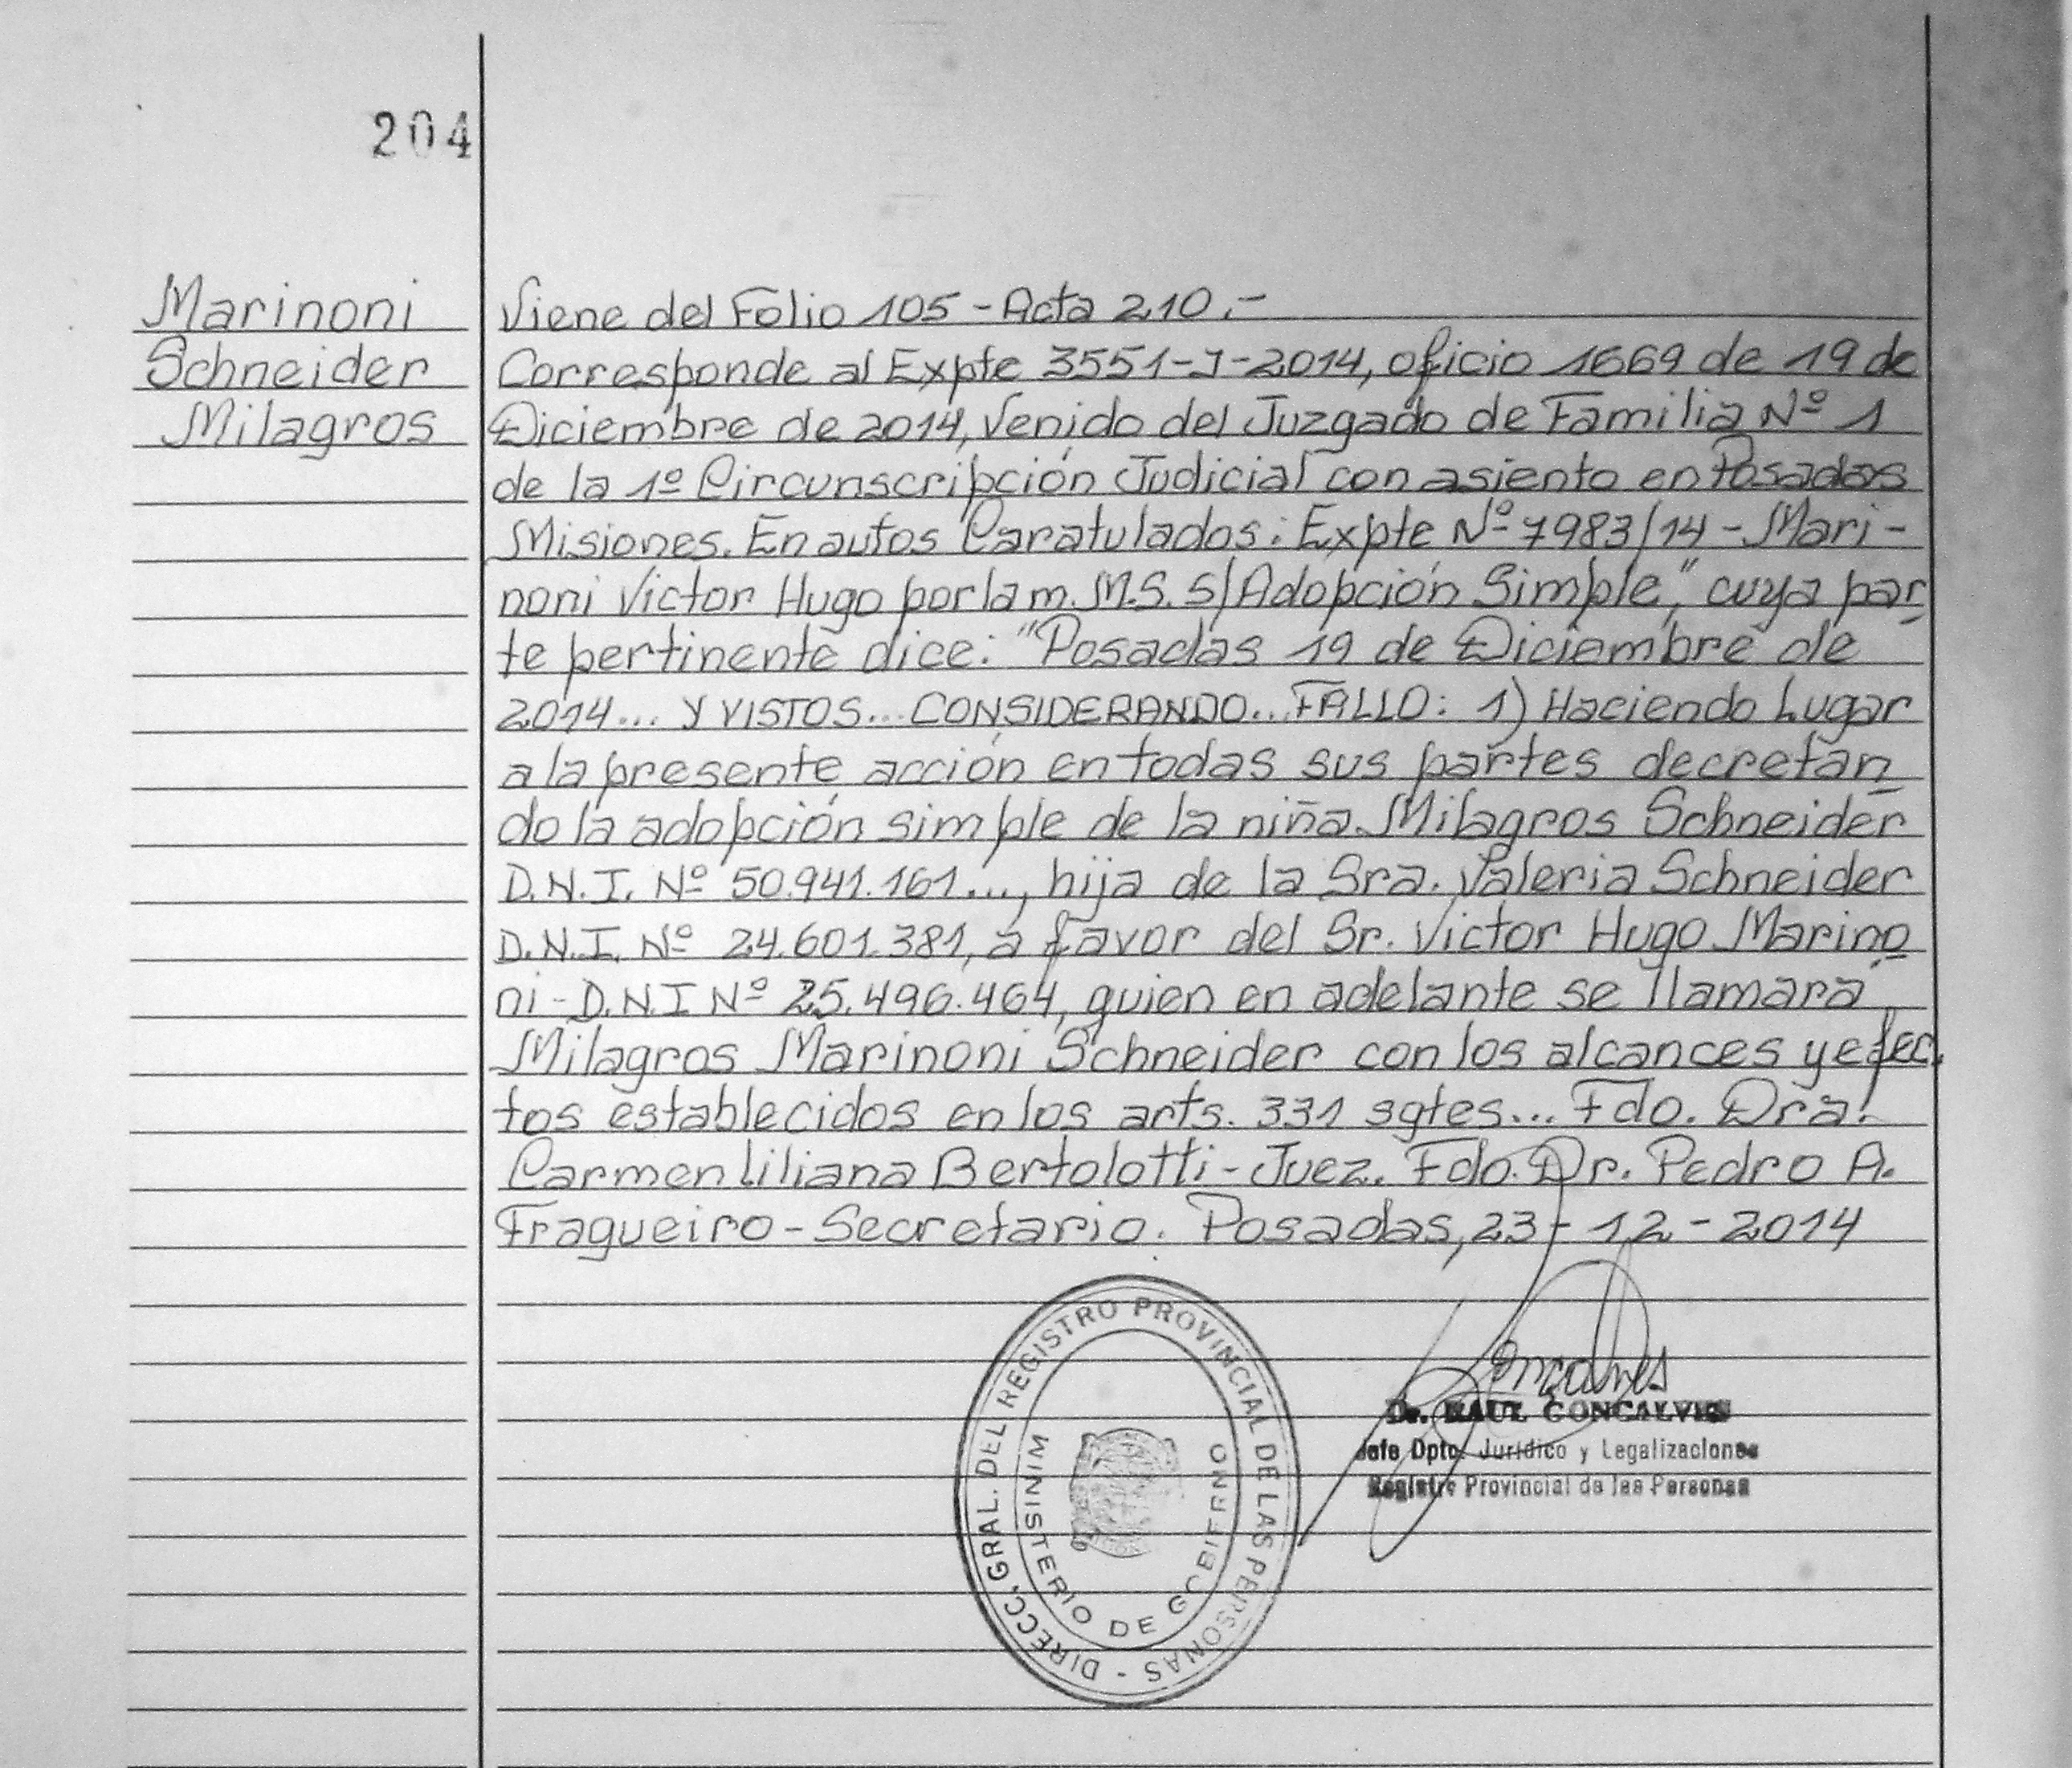 204
Marinoni
Schneider
Milagros
Viene del Folio 105 - Acta 210.-
Corresponde al Expte 3551-J-2014, oficio 1669 de 19 de
Diciembre de 2014, Venido del Juzgado de Familia Nº 1
de la 1º Circunscripción Judicial con asiento en Posadas
Misiones. En autos Caratulados: Expte Nº 7983/14 - Mari-
noni Victor Hugo por la m. M.S. S/Adopción Simple", cuya par
te pertinente dice: "Posadas 19 de Diciembre de
2014... Y VISTOS... CONSIDERANDO... FALLO: 1) Haciendo Lugar
a la presente acción en todas sus partes decretan
do la adopción simple de la niña Milagros Schneider
D.N.I. Nº 50.941.161..., hija de la Sra. Valeria Schneider
D.N.I. Nº 24.601.381, a favor del Sr. Victor Hugo Marino
ni - D.N.I Nº 25.496.464, quien en adelante se llamará
Milagros Marinoni Schneider con los alcances y efec
tos establecidos en los arts. 331 sgtes... Fdo. Dra.
Carmen Liliana Bertolotti - Juez. Fdo. Dr. Pedro A.
Fragueiro - Secretario. Posadas, 23-12-2014
DIRECC. GRAL. DEL REGISTRO PROVINCIAL DE LAS PERSONAS -
MINISTERIO DE GOBIERNO
Goncalves
Dr. RAUL GONCALVES
Jefe Dpto. Jurídico y Legalizaciones
Registro Provincial de las Personas